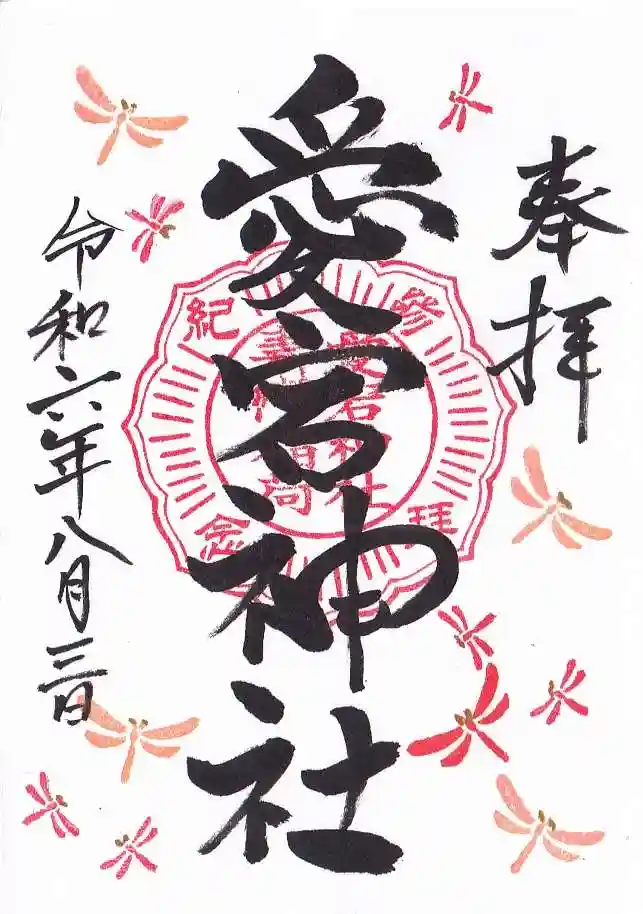 奉拝
愛宕神社
令和六年八月三日
參拜紀念
愛宕神社